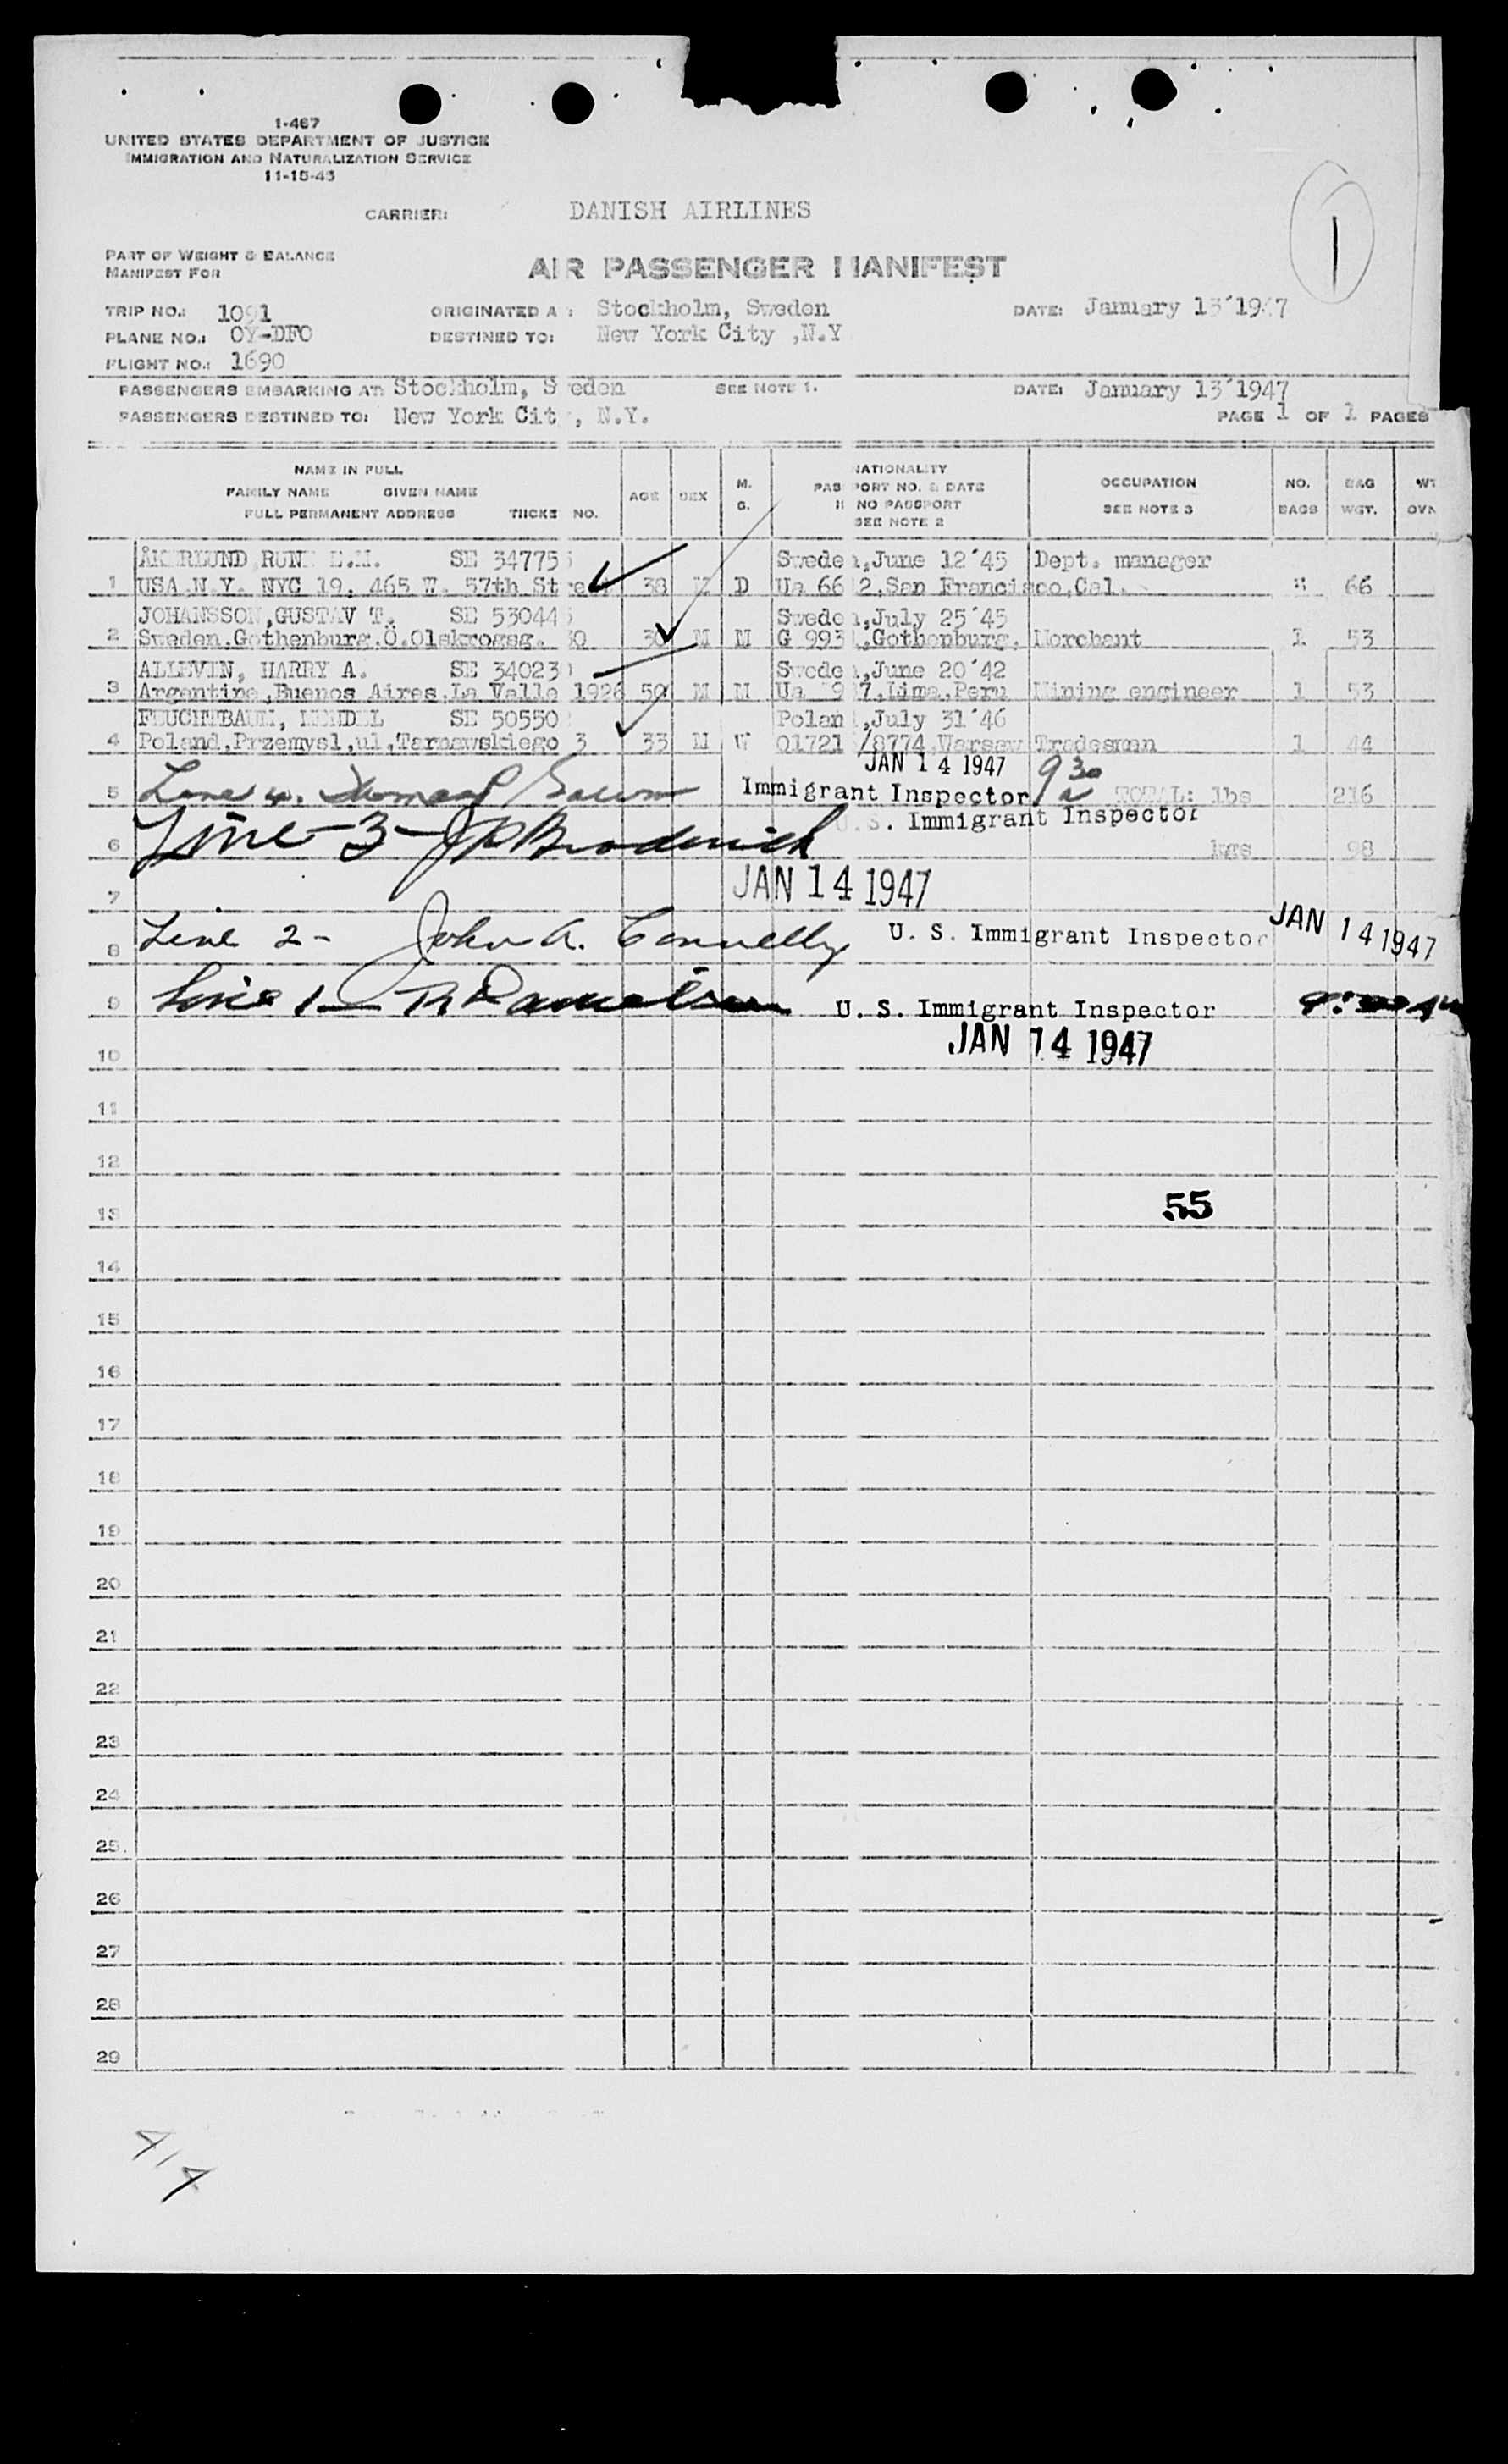 1-467
UNITED STATES DEPARTMENT OF JUSTICE
IMMIGRATION AND NATURALIZATION SERVICE
11-15-43
CARRIER: DANISH AIRLINES
PART OF WEIGHT & BALANCE
MANIFEST FOR
AIR PASSENGER MANIFEST
1
TRIP NO.: 1091 ORIGINATED A : Stockholm, Sweden DATE: January 13´1947
PLANE NO.: OY-DFO DESTINED TO: New York City ,N.Y
FLIGHT NO.: 1690
PASSENGERS EMBARKING AT: Stockholm, S eden SEE NOTE 1. DATE: January 13´1947
PASSENGERS DESTINED TO: New York Cit , N.Y. PAGE 1 OF 1 PAGES
NAME IN FULL
FAMILY NAME GIVEN NAME
FULL PERMANENT ADDRESS TIICKE NO.
AGE SEX M. G.
NATIONALITY
PAS PORT NO. & DATE
IF NO PASSPORT
SEE NOTE 2
OCCUPATION
SEE NOTE 3
NO. BAGS
BAG WGT.
WT OVN
ÅKERLUND RUNE E.H. SE 34775 Swede ,June 12´45 Dept. manager
1 USA.N.Y. NYC 19, 465 W. 57th Stre 38 D Ua 66 2,San Francisco,Cal. 66
JOHANSSON,GUSTAV T. SE 53044 Swede ,July 25´45
2 Sweden.Gothenburg.Ö.Olskrogsg. 30 M M G 993 .Gothenburg. Merchant 1 53
ALLEVIN, HARRY A. SE 34023 Swede ,June 20´42
3 Argentine,Buenos Aires.La Valle 1926 50 M M Ua 9 7,Lima.Peru Mining engineer 1 53
FEUCHTBAUM, MENDEL SE 50550 Polan ,July 31´46
4 Poland.Przemysl,ul.Tarnawskiego 3 33 M W 01721 /8774.Warsaw Tradesman 1 44
JAN 14 1947 9 30 a
5 Line 4. Immigrant Inspector TOTAL: lbs 216
U.S. Immigrant Inspector
6 Line 3 - J R Broderick kgs 98
7 JAN 14 1947
8 Line 2 - John A. Connelly U. S. Immigrant Inspector JAN 14 1947
9 Line 1 - U. S. Immigrant Inspector
JAN 14 1947
10
11
12
13 55
14
15
16
17
18
19
20
21
22
23
24
25.
26
27
28
29